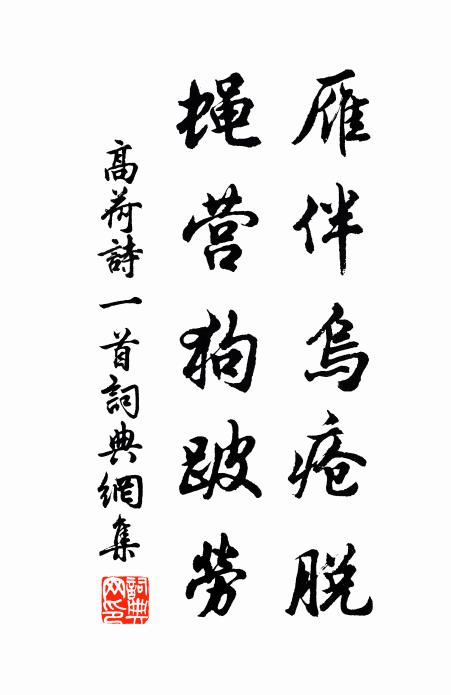 雁伴烏疮脱
蝇营狗跛劳
高荷詩一首詞典網集
詞典网印